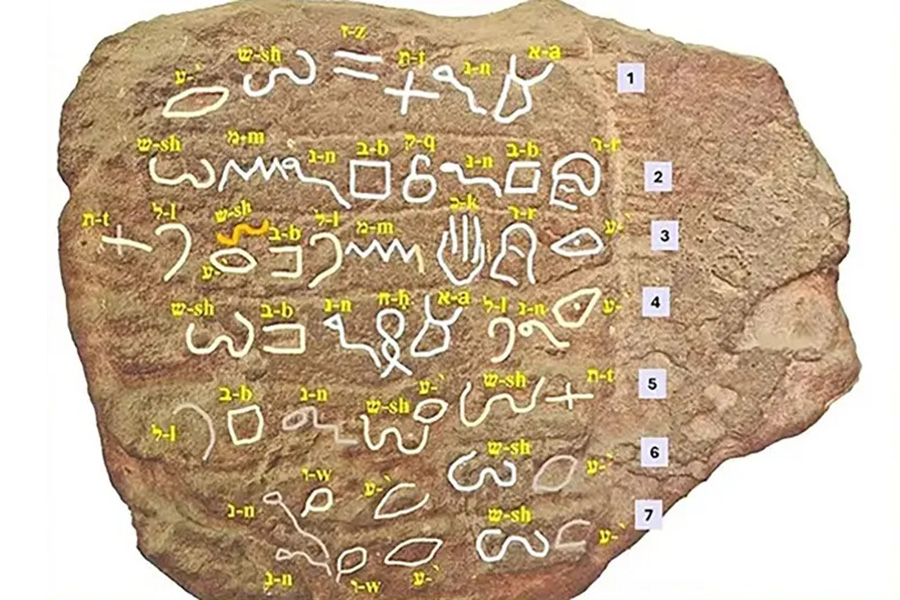 1 א-a נ-n ת-t ז-z ש-sh ע-`
2 ר-r ב-b נ-n ק-q ב-b נ-n מ-m ש-sh
3 ע-` ר-r כ-k מ-m ל-l ב-b ש-sh ע-` ל-l ת-t
4 ע-` נ-n ל-l א-a ח-h נ-n ב-b ש-sh
5 ת-t ש-sh ע-` ש-sh נ-n ב-b ל-l
6 ע-` ש-sh ע-` ו-w נ-n
7 ע-` ש-sh ע-` ו-w נ-n